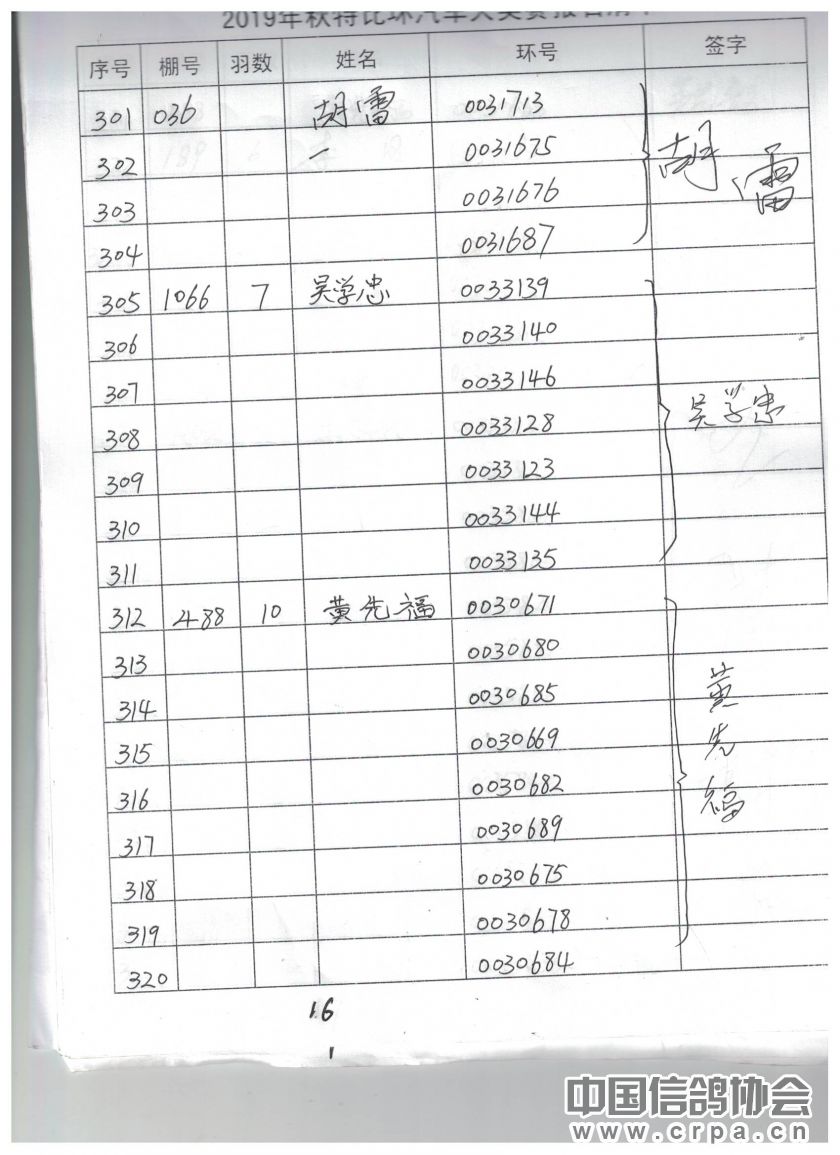 2019年秋特比环汽车大奖赛报名清单
序号 棚号 羽数 姓名 环号 签字
301 036 胡雷 0031713
302 0031675 胡雷
303 0031676
304 0031687
305 1066 7 吴学忠 0033139
306 0033140
307 0033146
308 0033128 吴学忠
309 0033123
310 0033144
311 0033135
312 488 10 黄先福 0030671
313 0030680
314 0030685 黄先福
315 0030669
316 0030682
317 0030689
318 0030675
319 0030678
320 0030684
16
1
中国信鸽协会
www.crpa.cn